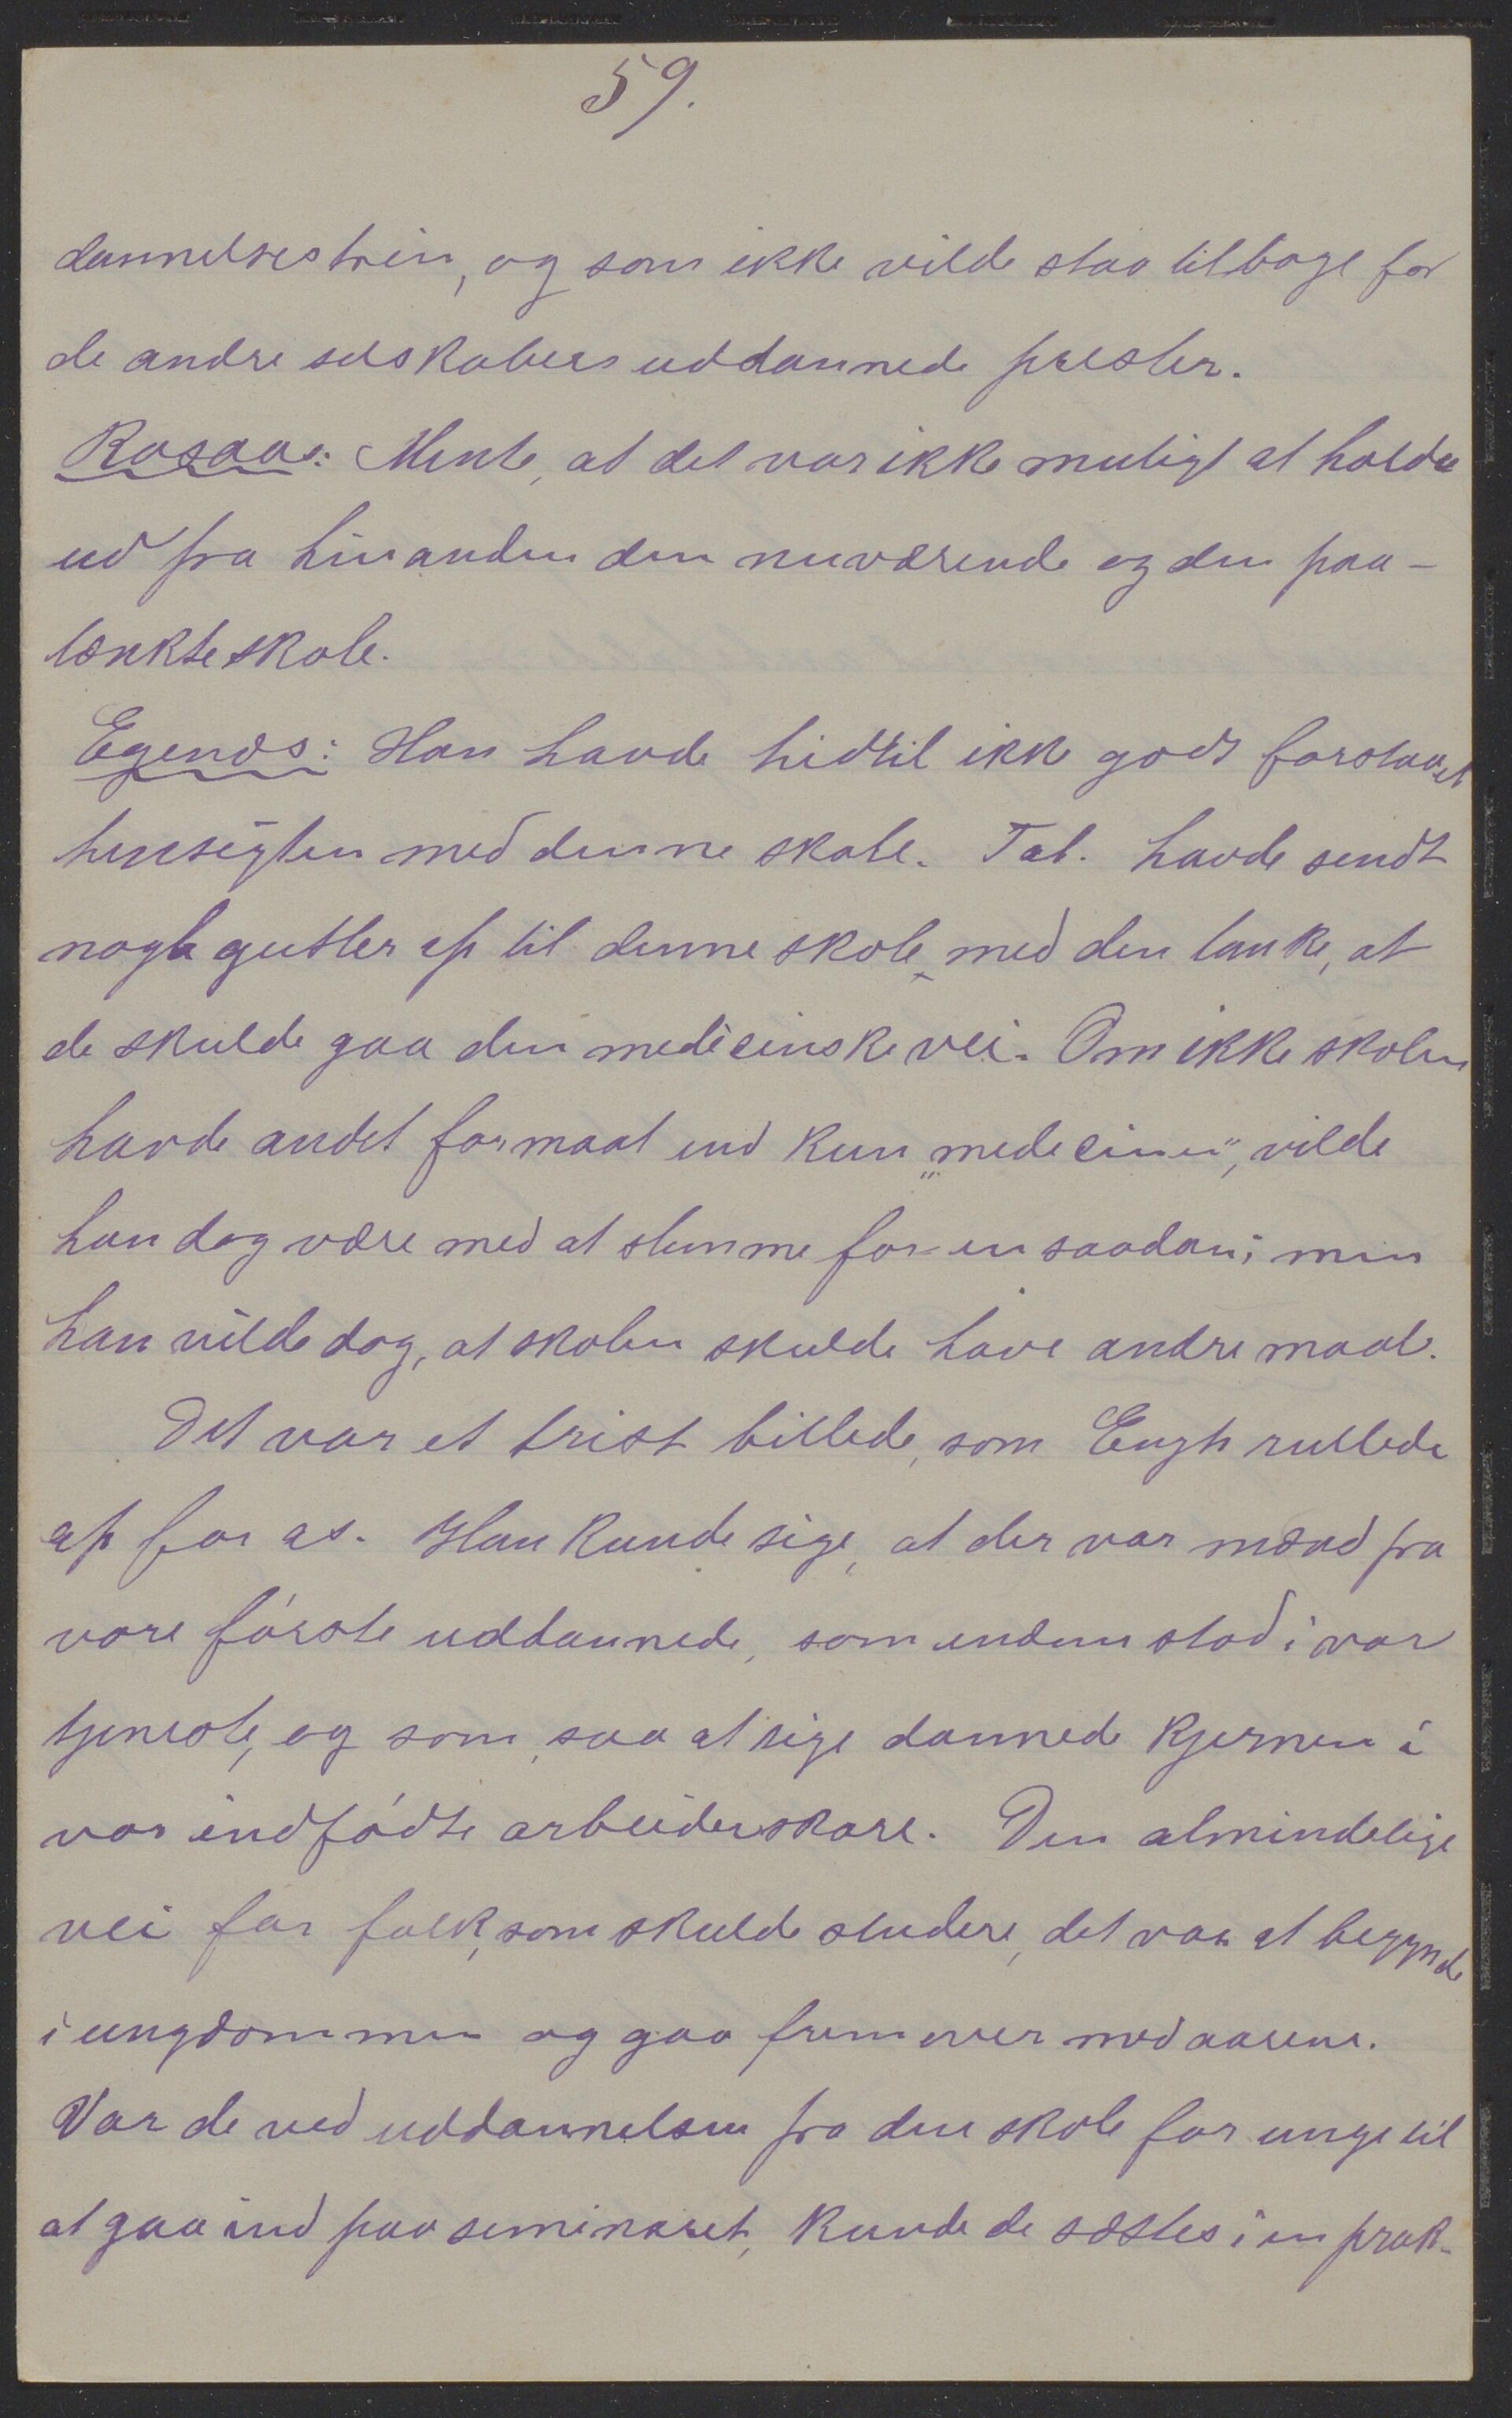 59.
dannelsestrin, og som ikke vilde staa tilbage for
de andre selskabers uddannede prester.
Rosaas: Mente, at det var ikke muligt at holde
ud fra hinanden den nuværende og den paa-
tænkte skole.
Egenæs: Han havde hidtil ikke godt forstaaet
hensigten med denne skole. Tal. havde sendt
nogle gutter op til denne skole med den tanke, at
de skulde gaa den medicinske vei. Om ikke skolen
havde andet formaal end kun "medeciner", vilde
han dog være med at stemme for en saadan; men
han vilde dog, at skolen skulde have andre maal.
Det var et trist billede, som Engh rullede
op for os. Han kunde sige, at der var mænd fra
vore første uddannede, som endnu stod i vor
tjeneste, og som, saa at sige dannede kjernen i
vor indfødte arbeiderskare. Den almindelige
vei for folk, som skulde studere, det var at begynde
i ungdommen og gaa fremover med aarene.
Var de ved uddannelsen fra den skole for unge til
at gaa ind paa seminaret, kunde de sættes i en prak-